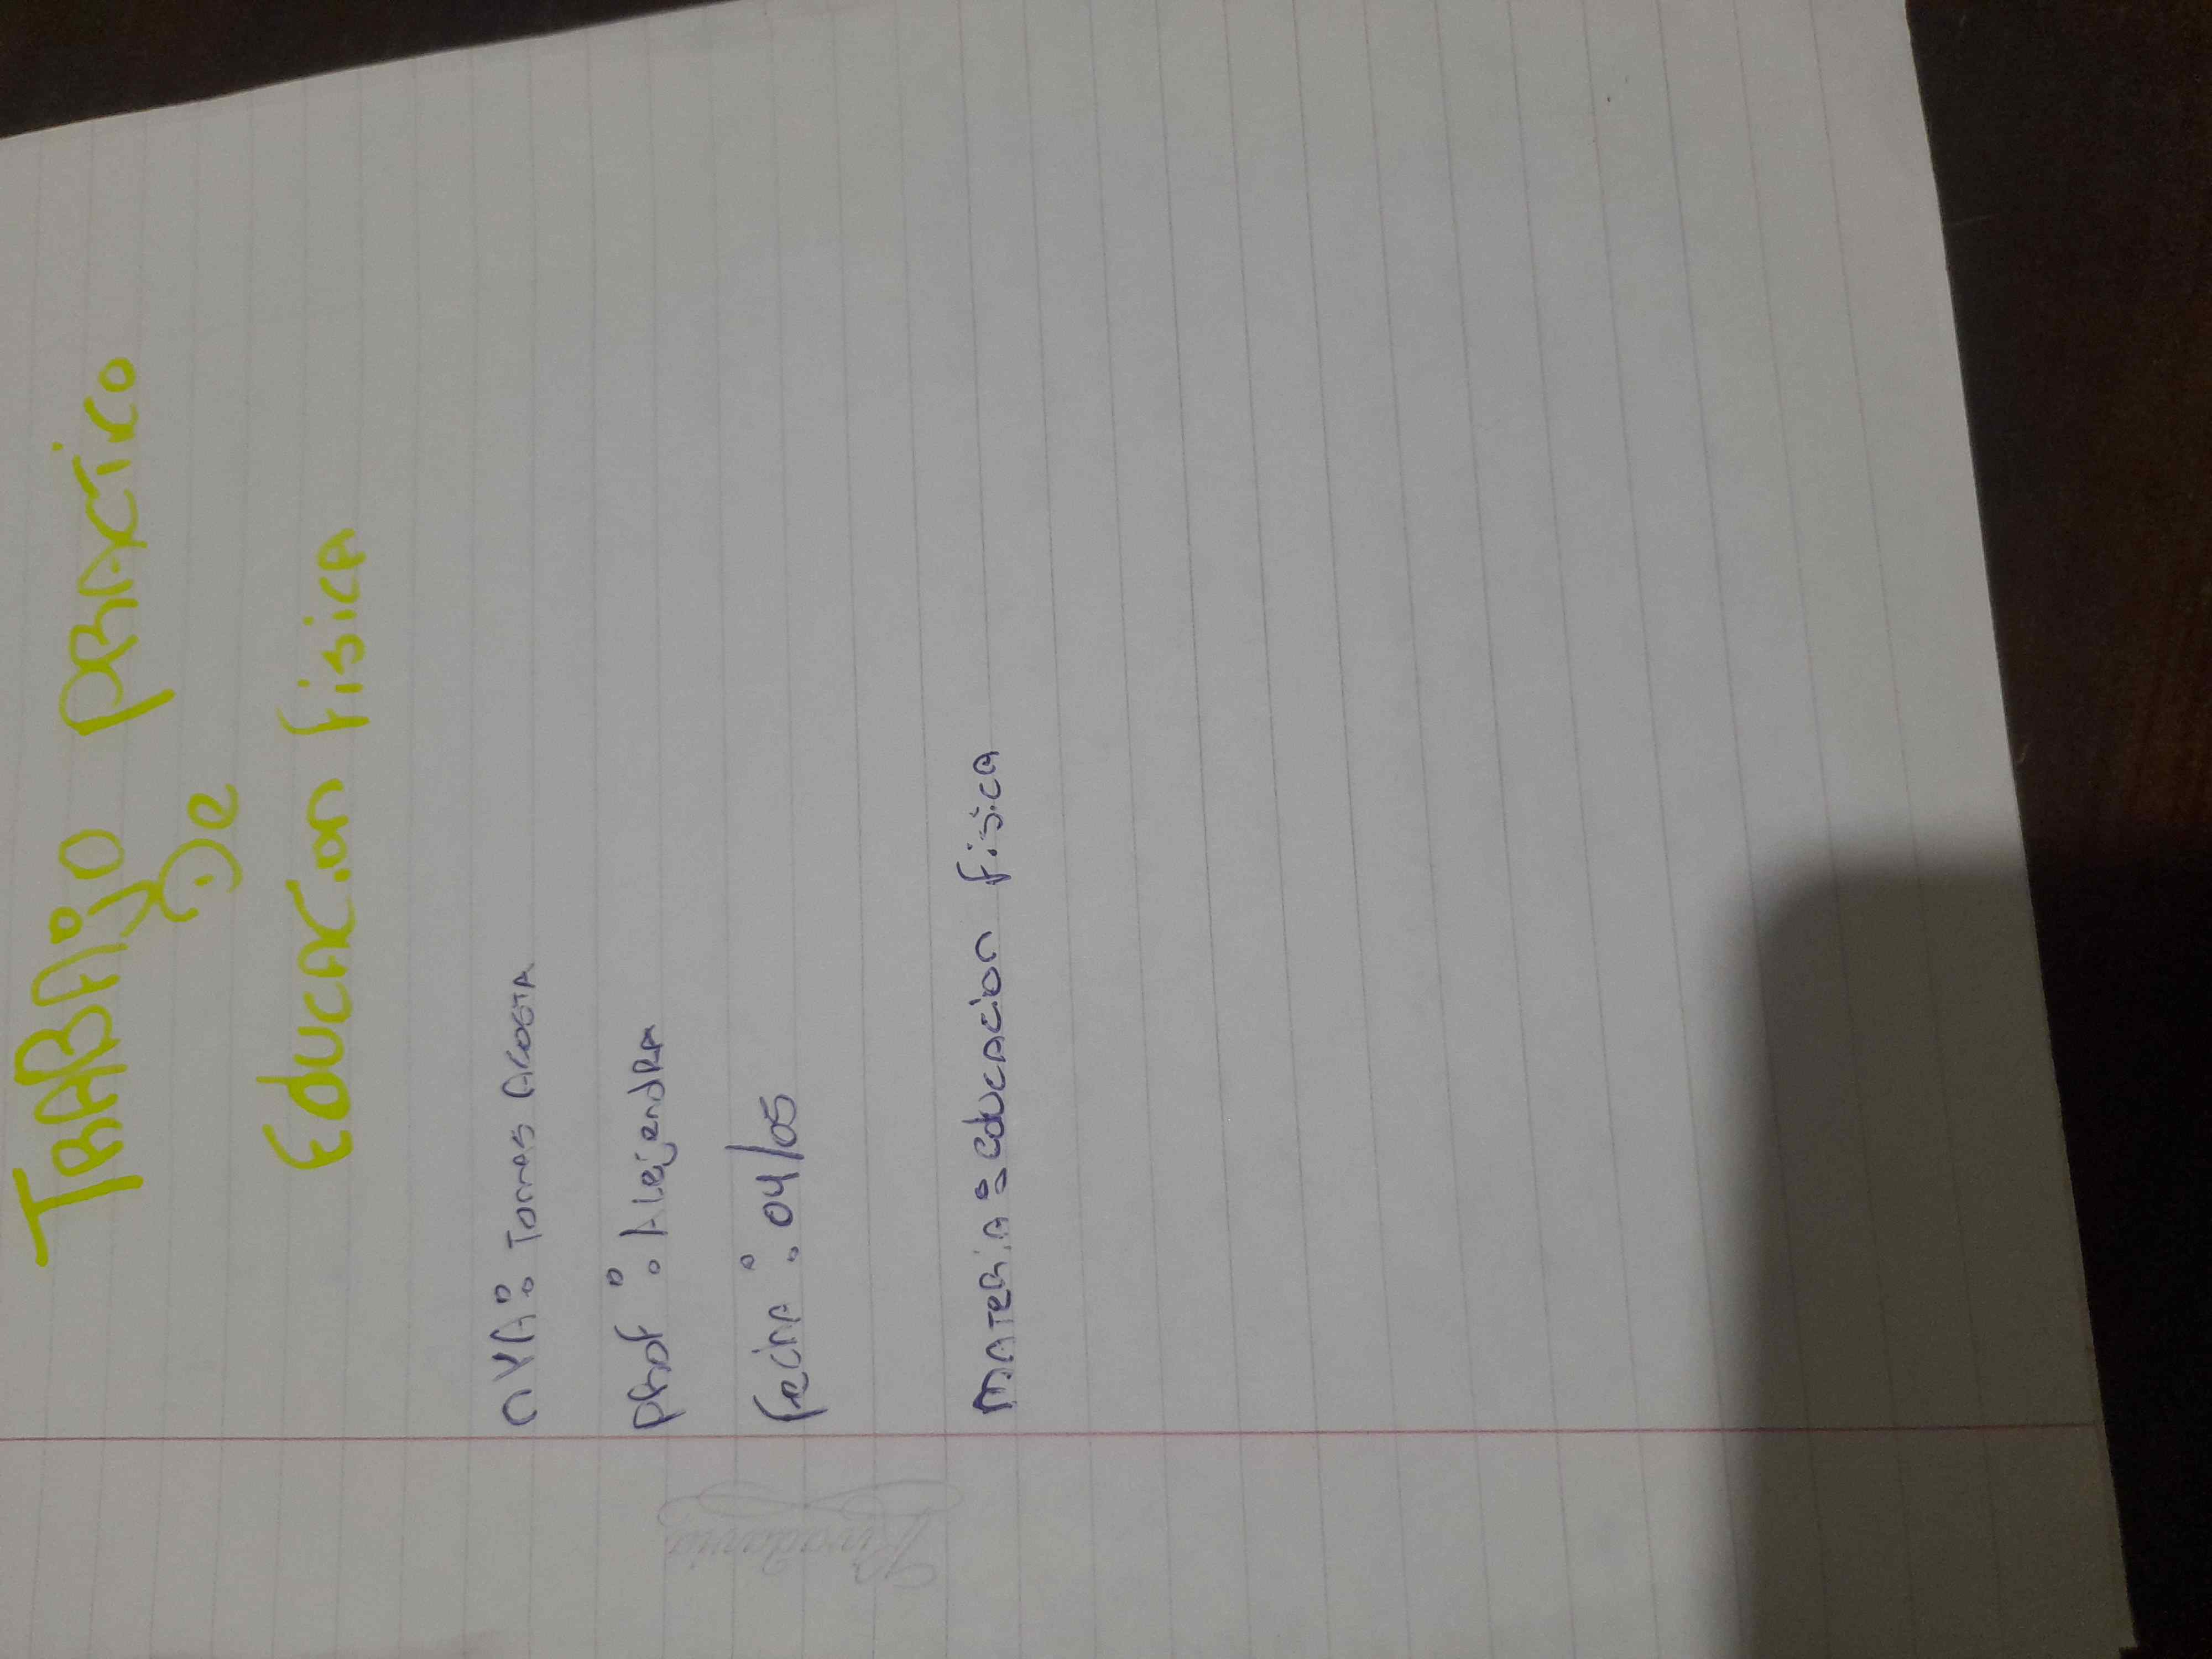 TRABAjO PRACTiCO
De
Educacion fisica
nYA: Tomas Acosta
Prof: Alejandra
fecha: 04/05
MATERiA: educacion fisica
Rivadavia